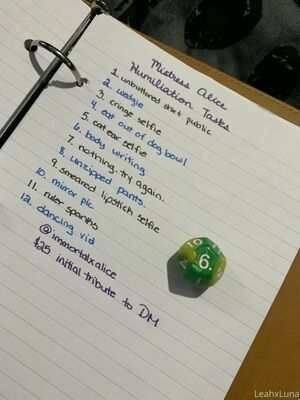 Mistress Alice
Humiliation Tasks
1. unbuttoned shirt public
2. wedgie
3. cringe selfie
4. eat out of dog bowl
5. cat ear selfie
6. body writing
7. nothing. try again.
8. unzipped pants.
9. smeared lipstick selfie
10. mirror pic
11. ruler spanks
12. dancing vid
@immortalxalice
$25 initial tribute to DM
10
6.
LeahxLuna